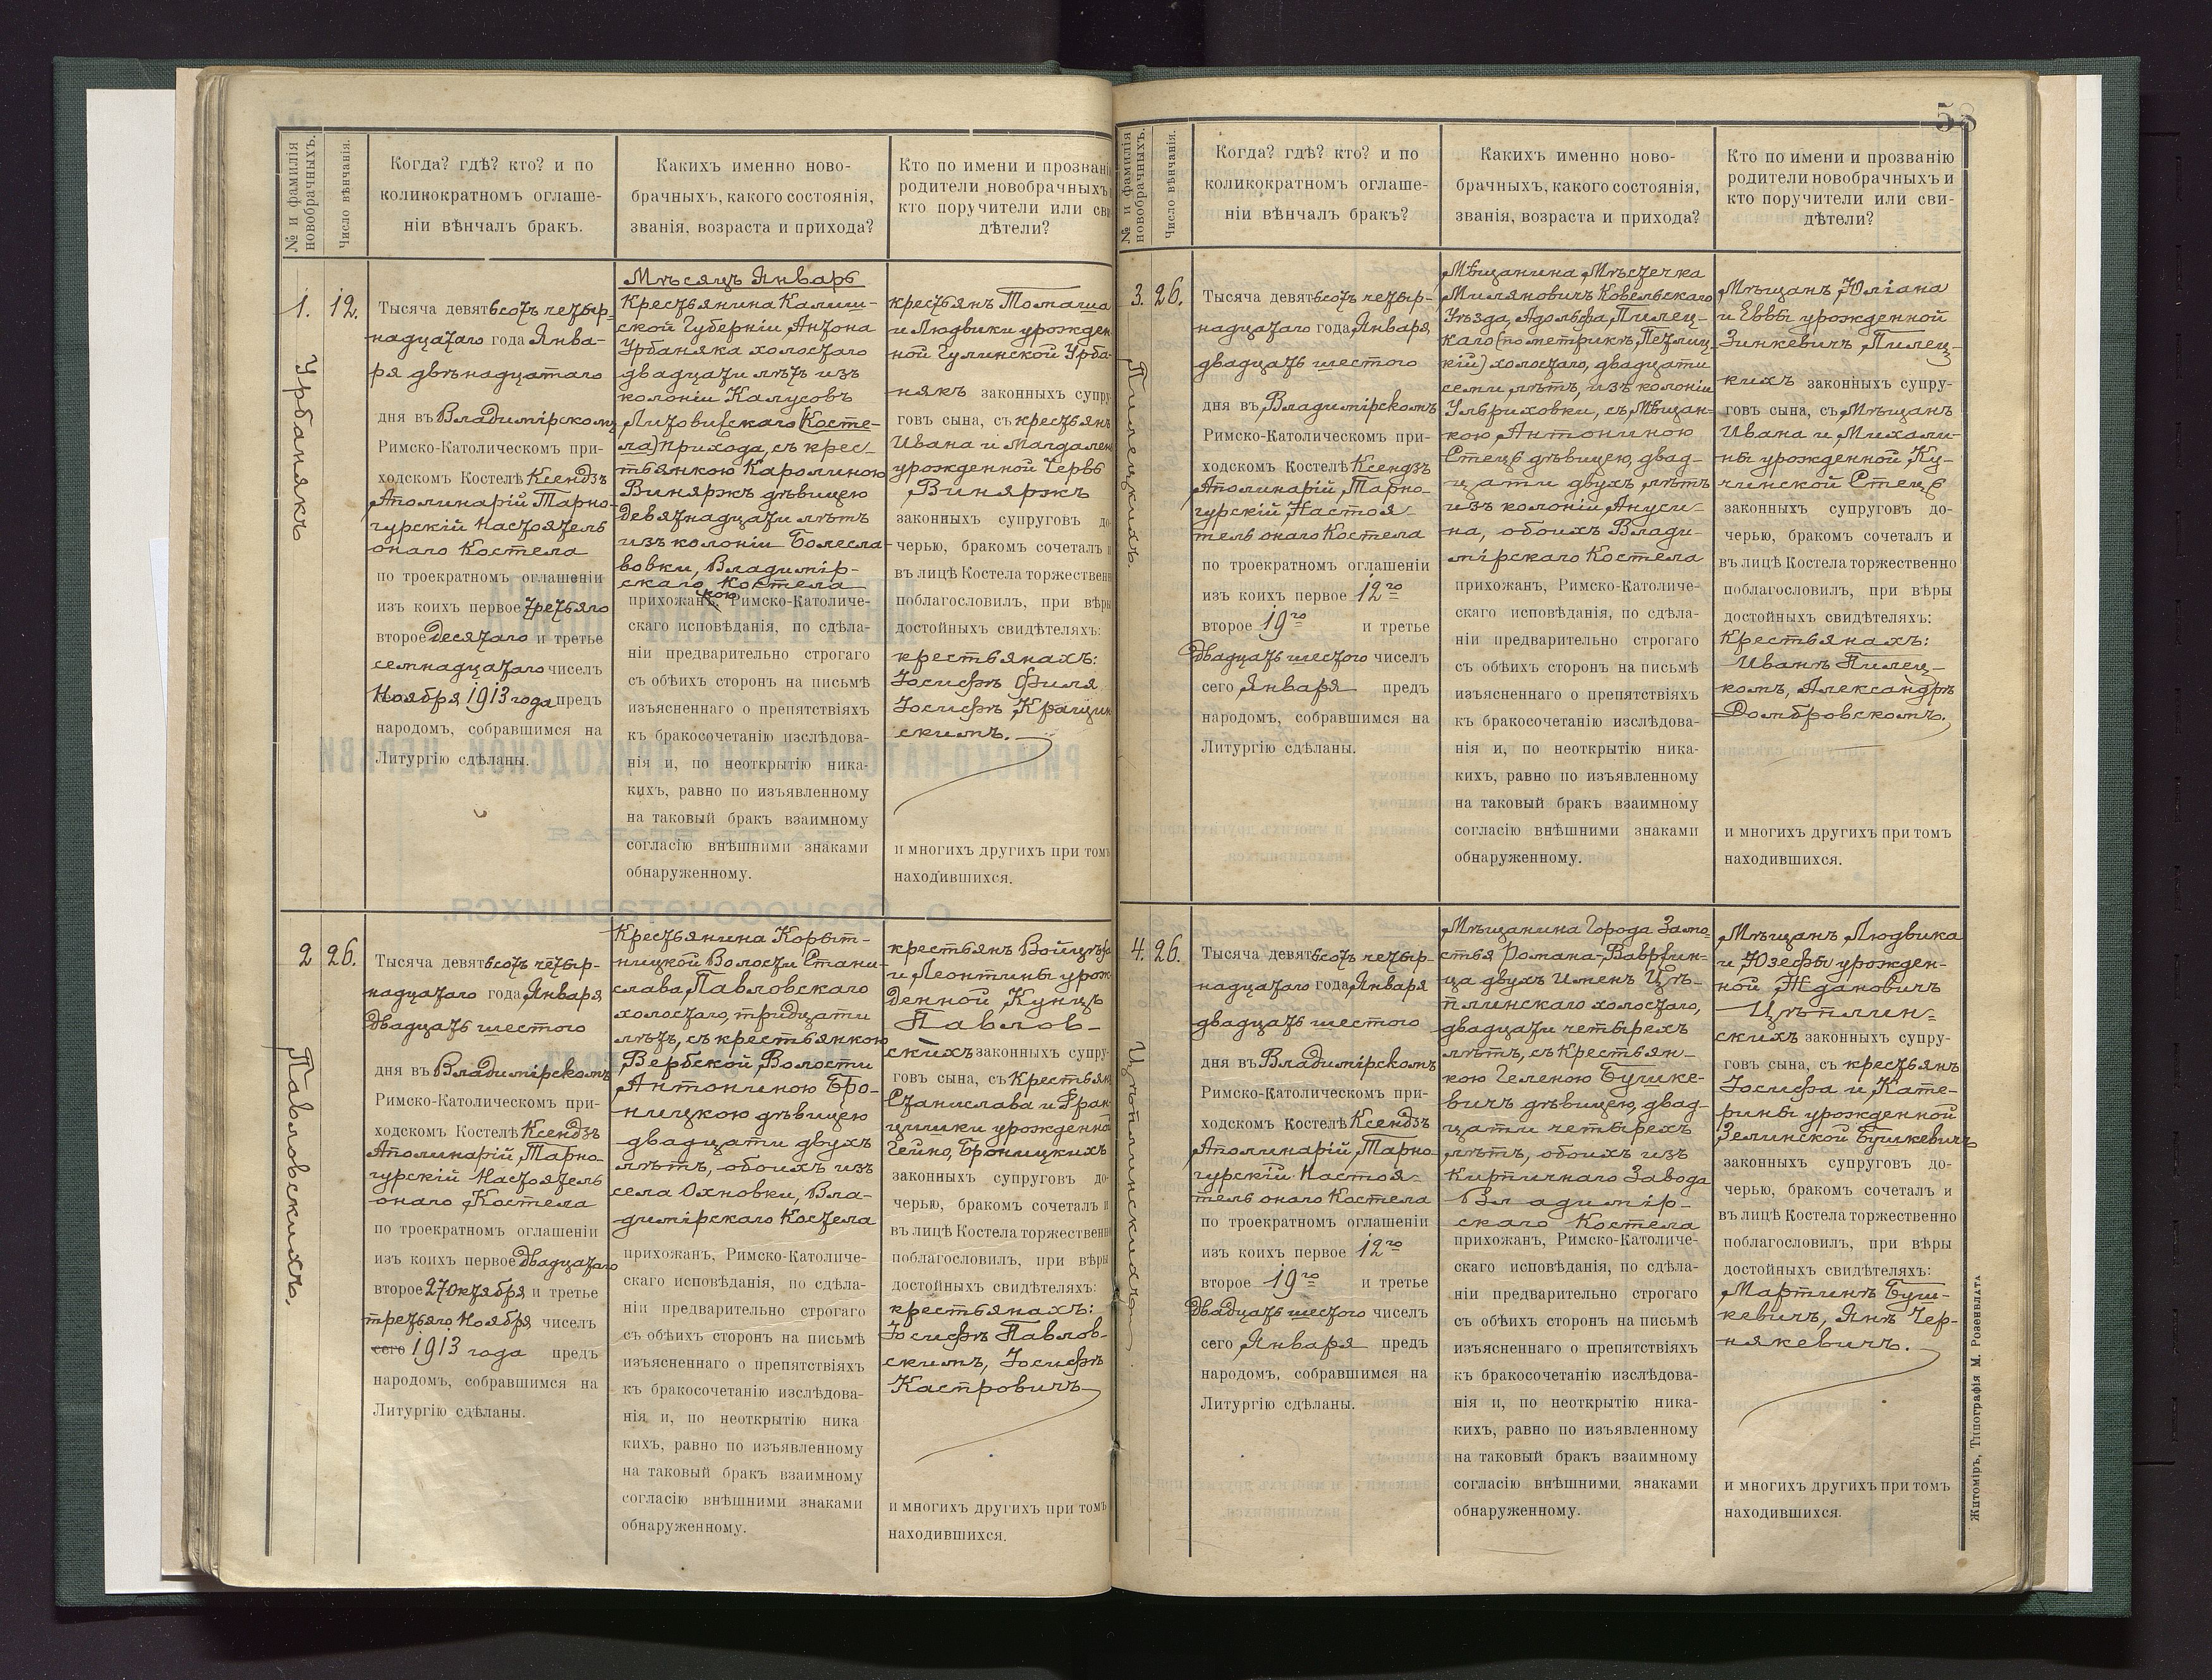 58
№ и фамилія новобрачныхъ.
Число вѣнчанія.
Когда? гдѣ? кто? и по
коликократномъ оглаше-
ніи вѣнчалъ бракъ.
Какихъ именно ново-
брачныхъ, какого состоянія,
званія, возраста и прихода?
Кто по имени и прозвані
родители новобрачныхъ
кто поручители или сви
дѣтели?
1.
12.
Урбанякъ
Тысяча девятьсотъ четыр-
надцатаго года Янва-
ря двѣнадцатаго
дня въ Владимірскомъ
Римско-Католическомъ при-
ходскомъ Костелѣ Ксендзъ
Аполинарій Тарно-
гурскій Настоятель
онаго Костела
по троекратномъ оглашеніи
изъ коихъ первое третьяго
второе десятаго и третье
семнадцатаго чиселъ
Ноября 1913 года предъ
народомъ, собравшимся на
Литургію сдѣланы.
Мѣсяцъ Январь
Крестьянина Калиш-
ской Губерніи Антона
Урбаняка холостаго
двадцати лѣтъ изъ
колоніи Калусовъ
(Косте-
ла) прихода, съ крес-
тьянкою Каролиною
Виняржъ дѣвицею
девятнадцати лѣтъ
изъ колоніи Болесла-
вовки, Владимір-
скаго Костела
прихожан кою Римско-Католиче-
скаго исповѣданія, по сдѣла-
ніи предварительно строгаго
съ обѣихъ сторонъ на письмѣ
изъясненнаго о препятствіяхъ
къ бракосочетанію изслѣдова-
нія и, по неоткрытію ника-
кихъ, равно по изъявленному
на таковый бракъ взаимному
согласію внѣшними знаками
обнаруженному.
крестьянъ Томаша
и Людвики урожден
ной Гулинской Урба-
някъ законныхъ супру
говъ сына, съ крестьянъ
Ивана и Магдалены
урожденной Червь
Виняржъ
законныхъ супруговъ до-
черью, бракомъ сочеталъ и
въ лицѣ Костела торжественн
поблагословилъ, при вѣры
достойныхъ свидѣтеляхъ:
крестьянахъ:
Іосифѣ Филя
Іосифѣ
скимъ.
и многихъ другихъ при томъ
находившихся.
2
26.
Павловскихъ.
Тысяча девятьсотъ четыр-
надцатаго года Января
двадцать шестого
дня въ Владимірскомъ
Римско-Католическомъ при-
ходскомъ Костелѣ Ксендзъ
Аполинарій Тарно-
гурскій Настоятель
онаго Костела
по троекратномъ оглашеніи
изъ коихъ первое двадцатаго
второе 27 октября и третье
третьяго Ноября чиселъ
сего 1913 года предъ
народомъ, собравшимся на
Литургію сдѣланы.
Крестьянина Корыт-
ницкой Волости Стани-
слава Павловскаго
холостаго, тридцати
лѣтъ, съ крестьянкою
Вербской Волости
Антониною Бро-
ницкою дѣвицею
двадцати двухъ
лѣтъ, обоихъ изъ
села Охновки, Вла-
димірскаго Костела
прихожанъ, Римско-Католиче-
скаго исповѣданія, по сдѣла-
ніи предварительно строгаго
съ обѣихъ сторонъ на письмѣ
изъясненнаго о препятствіяхъ
къ бракосочетанію изслѣдова-
нія и, по неоткрытію ника
кихъ, равно по изъявленному
на таковый бракъ взаимному
согласію внѣшними знаками
обнаруженному.
крестьянъ
и Леонтины урож
денной Кунцъ
Павлов-
скихъ законныхъ супру-
говъ сына, съ Крестьян
Станислава и Фран-
цишки урожденной
Гейно, Броницкихъ
законныхъ супруговъ до-
черью, бракомъ сочеталъ и
въ лицѣ Костела торжественн
поблагословилъ, при вѣры
достойныхъ свидѣтеляхъ:
крестьянахъ:
Іосифѣ Павлов-
скимъ, Іосифѣ
Кастровичъ
и многихъ другихъ при томъ
находившихся.
№ и фамилія новобрачныхъ.
Число вѣнчанія.
Когда? гдѣ? кто? и по
коликократномъ оглаше-
ніи вѣнчалъ бракъ?
Какихъ именно ново-
брачныхъ, какого состоянія,
званія, возраста и прихода?
Кто по имени и прозванію
родители новобрачныхъ и
кто поручители или сви-
дѣтели?
3.
26.
Пилецкихъ.
Тысяча девятьсотъ четыр-
надцатаго года Января
двадцать шестого
дня въ Владимірскомъ
Римско-Католическомъ при-
ходскомъ Костелѣ Ксендзъ
Аполинарій Тарно-
гурскій Настоя-
тель онаго Костела
по троекратномъ оглашеніи
изъ коихъ первое 12го
второе 19го и третье
двадцать шестого чиселъ
сего Января предъ
народомъ, собравшимся на
Литургію сдѣланы.
Мѣщанина Мѣстечка
Миляновичъ Ковельскаго
Уѣзда, Адольфа Пилец-
каго (по метрикѣ Петлиц-
кій) холостаго, двадцати
семи лѣтъ, изъ колоніи
Ульриховки, съ Мѣщан-
кою Антониною
Стець дѣвицею, двад-
цати двухъ лѣтъ
изъ колоніи Ануси-
на, обоихъ Влади-
мірскаго Костела
прихожанъ, Римско-Католиче-
скаго исповѣданія, по сдѣла-
ніи предварительно строгаго
съ обѣихъ сторонъ на письмѣ
изъясненнаго о препятствіяхъ
къ бракосочетанію изслѣдова-
нія и, по неоткрытію ника-
кихъ, равно по изъявленному
на таковый бракъ взаимному
согласію внѣшними знаками
обнаруженному.
Мѣщанъ Юліана
и Еввы урожденной
Зинкевичъ Пилец-
кихъ законныхъ супру-
говъ сына, съ Мѣщанъ
Ивана и Михали-
ны урожденной Ку-
чинской Стець
законныхъ супруговъ до-
черью, бракомъ сочеталъ и
въ лицѣ Костела торжественно
поблагословилъ, при вѣры
достойныхъ свидѣтеляхъ:
Крестьянахъ:
Иванѣ Пилец-
комъ, Александрѣ
Домбровскомъ.
и многихъ другихъ при томъ
находившихся.
4.
26.
Цѣплинскихъ
Тысяча девятьсотъ четыр-
надцатаго года Января
двадцать шестого
дня въ Владимірскомъ
Римско-Католическомъ при-
ходскомъ Костелѣ Ксендзъ
Аполинарій Тарно-
гурскій Настоя-
тель онаго Костела
по троекратномъ оглашеніи
изъ коихъ первое 12го
второе 19го и третье
двадцать шестого чиселъ
сего Января предъ
народомъ, собравшимся на
Литургію сдѣланы.
Мѣщанина Города Замо-
стья Романа-Вавржин-
ца двухъ Именъ Цѣ-
плинскаго холостаго,
двадцати четырехъ
лѣтъ, съ Крестьян-
кою Геленою Бушке-
вичъ дѣвицею, двад-
цати четырехъ
лѣтъ, обоихъ изъ
Кирпичнаго Завода
Владимір-
скаго Костела
прихожанъ, Римско-Католиче-
скаго исповѣданія, по сдѣла-
ніи предварительно строгаго
съ обѣихъ сторонъ на письмѣ
изъясненнаго о препятствіяхъ
къ бракосочетанію изслѣдова-
нія и, по неоткрытію ника-
кихъ, равно по изъявленному
на таковый бракъ взаимному
согласію внѣшними знаками
обнаруженному.
Мѣщанъ Людвика
и Юзефы урожден-
ной Ждановичъ
Цѣплин-
скихъ законныхъ супру-
говъ сына, съ крестьянъ
Іосифа и Кате-
рины урожденной
Зелинской Бушкевичъ
законныхъ супруговъ до-
черью, бракомъ сочеталъ и
въ лицѣ Костела торжественно
поблагословилъ, при вѣры
достойныхъ свидѣтеляхъ:
Мартинѣ Буш-
кевичъ, Янѣ Чер-
някевичъ.
и многихъ другихъ при томъ
находившихся.
Житоміръ, Типографія М. Розенблата